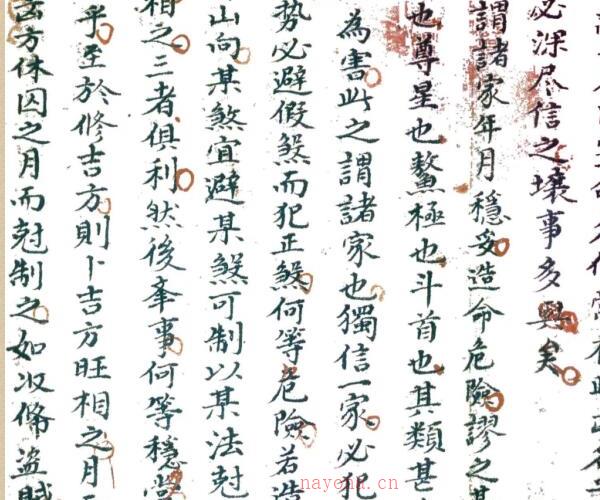 必深尽信之壞事多
謂諸家年月穩妥造命危險謬之甚
也尊星也鰲極也斗首也其類甚
為害此之謂諸家也獨信一家必犯
势必避假煞而犯正煞何等危險若造
山向某煞宜避某煞可制以某法尅
相之二者俱利然後举事何等穩當
乎至於修吉方則卜吉方旺相之月
凶方休囚之月而尅制之如收俻盗賊
nayona.cn